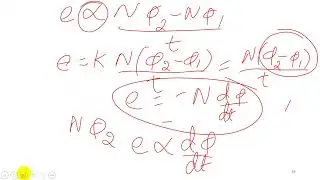 e ∝ Nφ₂-Nφ₁ / t
e = K N(φ₂-φ₁) / t = N(φ₂-φ₁) / t
e = -N dφ/dt
Nφ₂ e ∝ dφ/dt